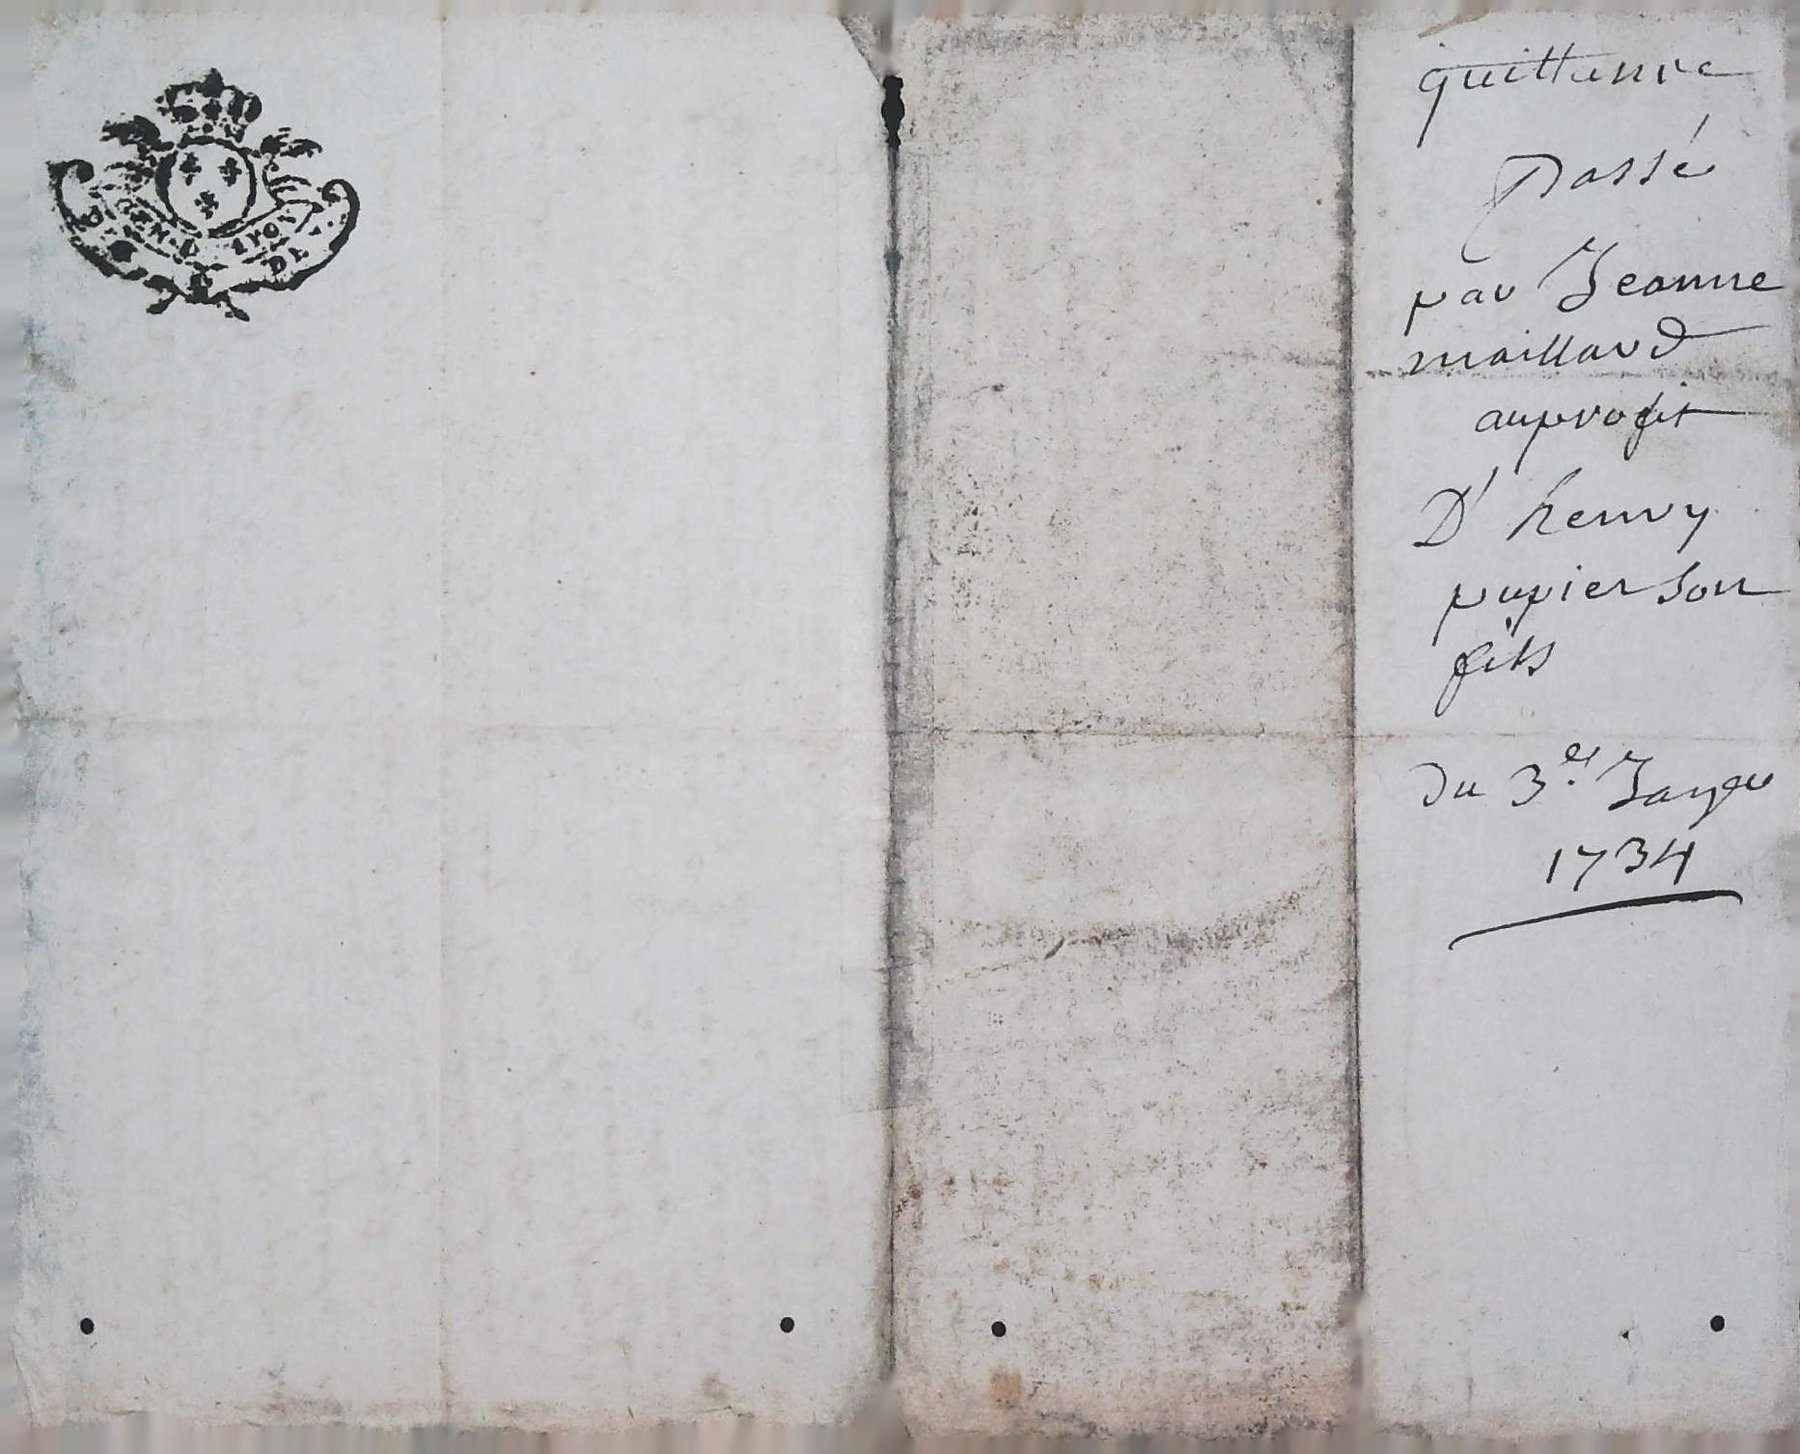 quittance
passé
par Jeanne
maillard
au profit
D'henry
papier son
fils
Du 3er Janver
1734